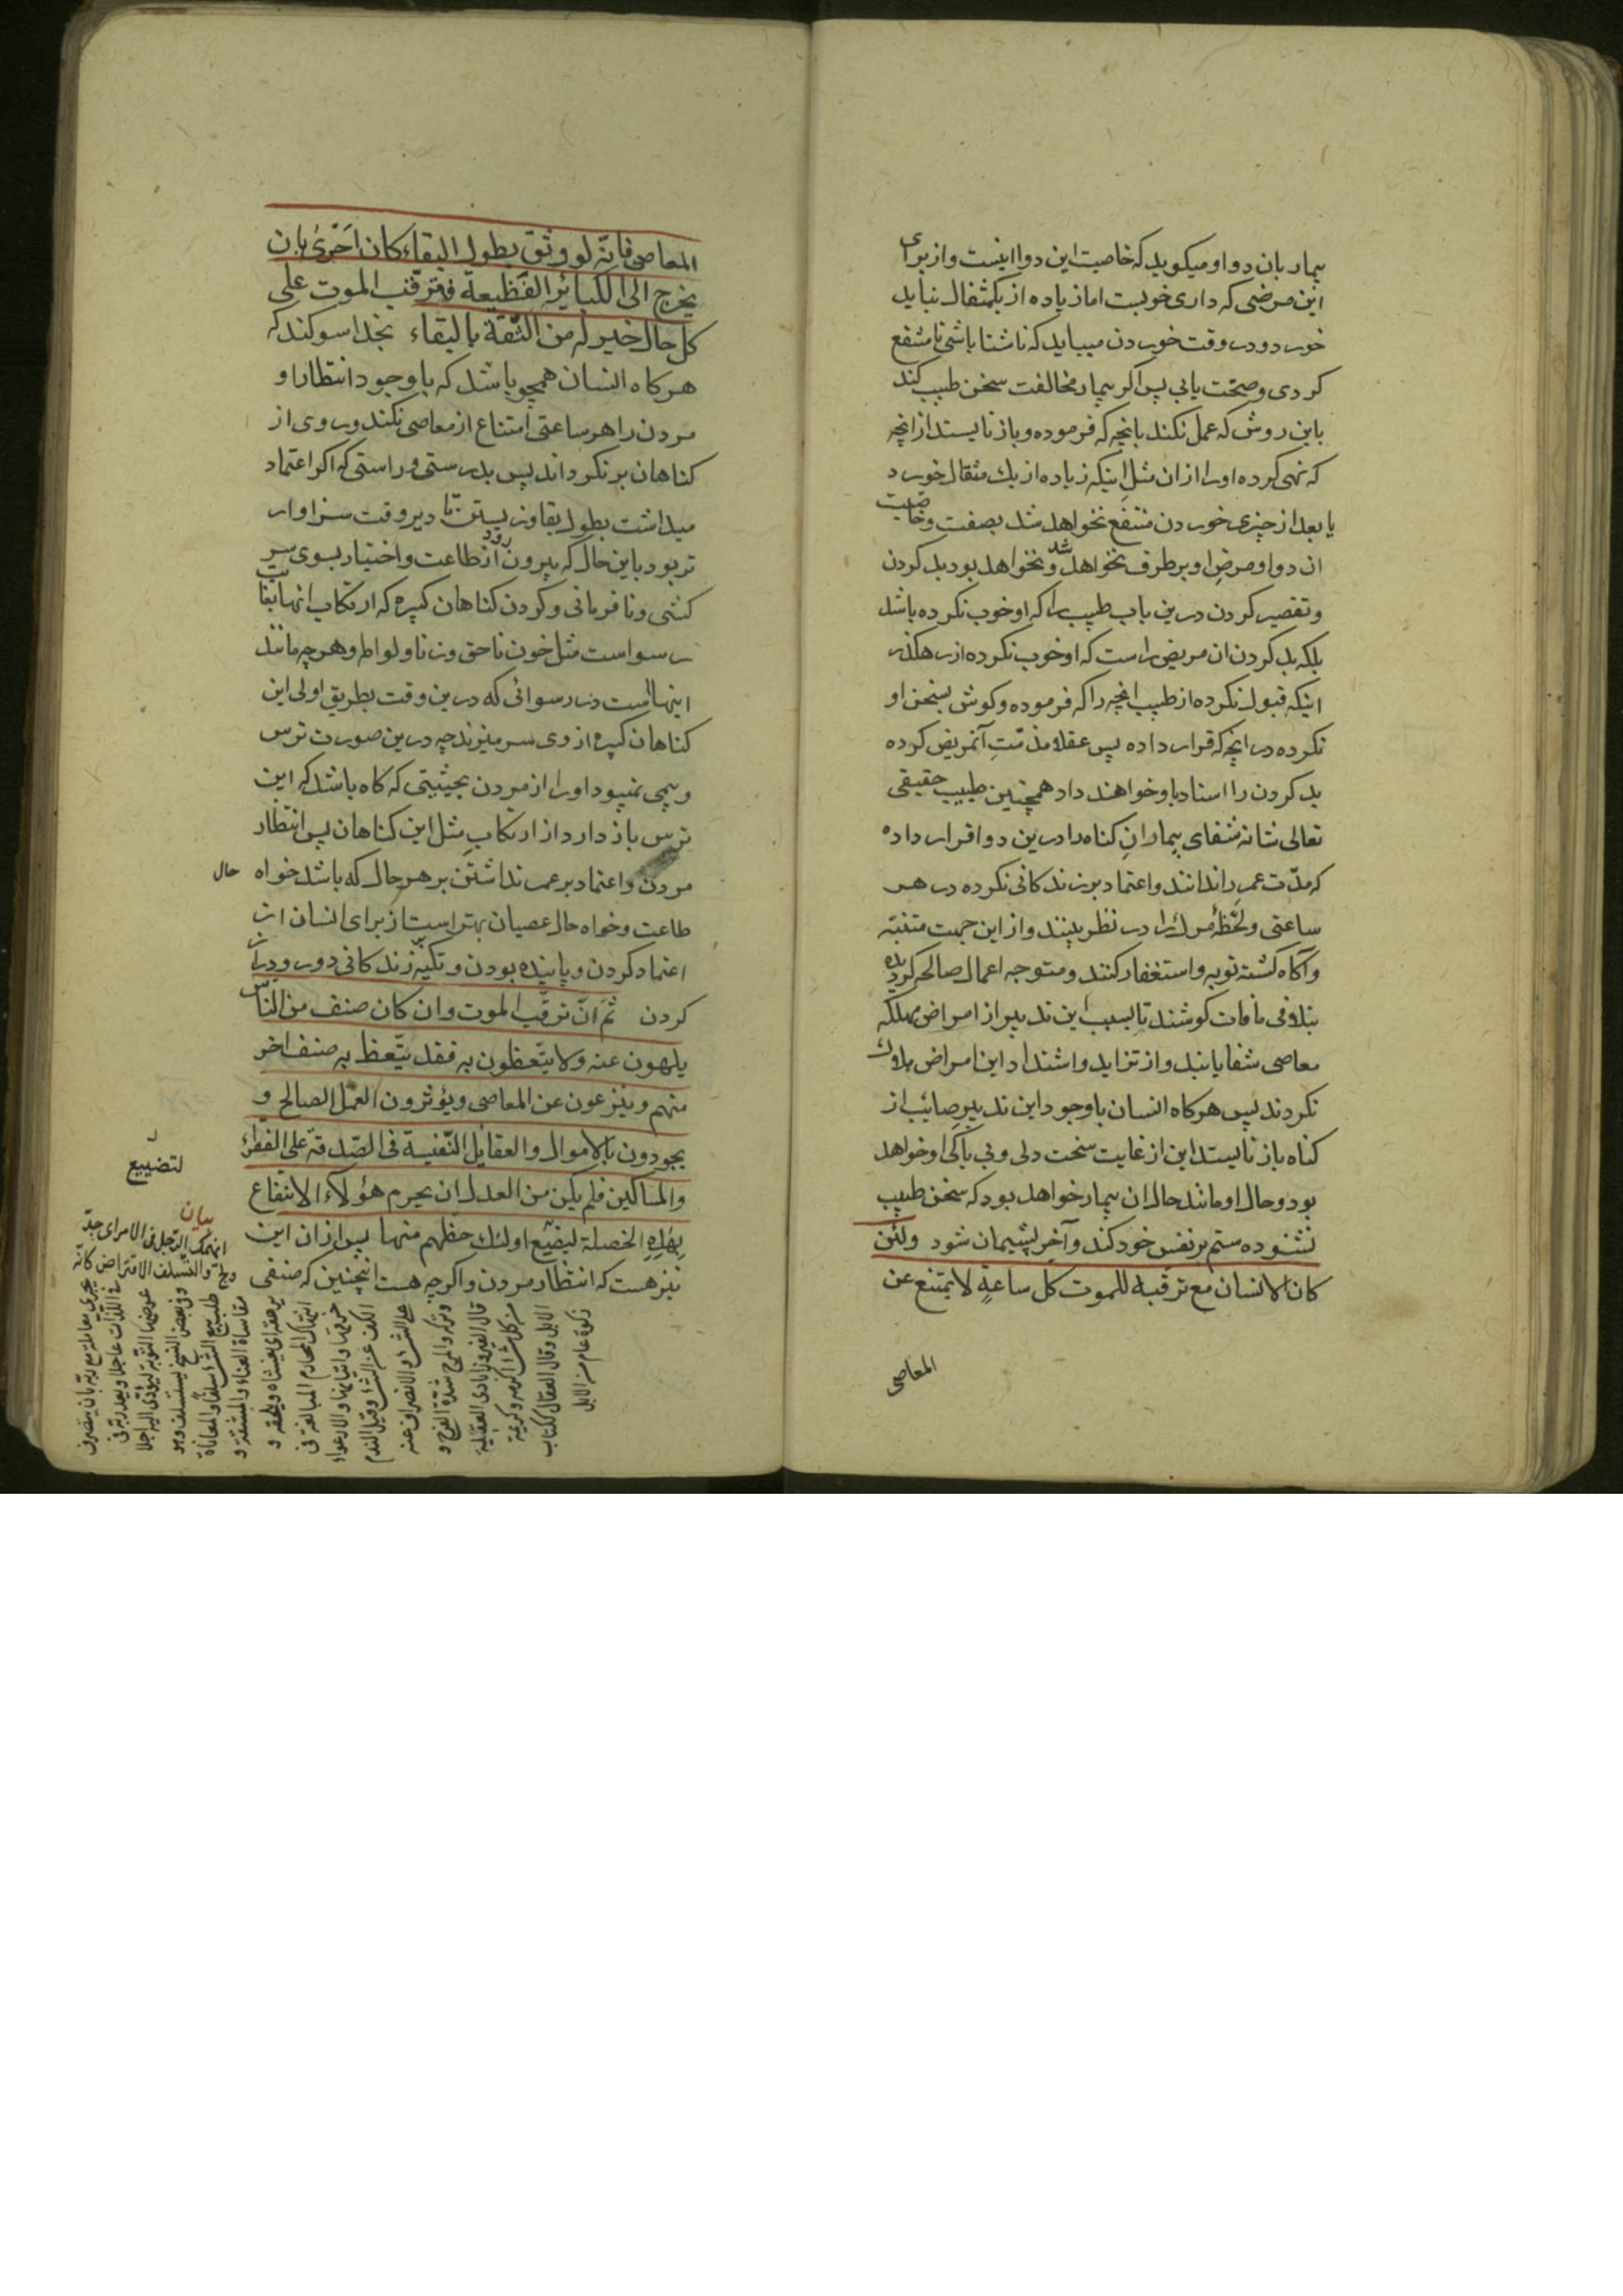 بیمار بان دوا و میکوید که خاصیت این دوا اینست و از برای
این مرضی که داری خوبست اما زیاده از یکمثقال نباید
خورد و در وقت خوردن میباید که ناشتا باشی تا منتفع
کردی و صحّت یابی پس اکر بیمار مخالفت سخن طبیب کند
باین روش که عمل نکند بانچه که فرموده و باز نایستد از انچه
که نهی کرده او را از ان مثل اینکه زیاده از یك مثقال خورد
یا بعد از چیزی خوردن منتفع نخواهد شد بصفت و خاصیت
ان دوا و مرض او برطرف نخواهد شد و نخواهد بود بد کردن
و تقصیر کردن درین باب طبیب را که او خوب نکرده باشد
بلکه بد کردن ان مریض راست که او خوب نکرده از رهکذر
اینکه قبول نکرده از طبیب انچه را که فرموده و کوش بسخن او
نکرده در انچه که قرار داده پس عقلا مذمّتِ آنمریض کرده
بد کردن را اسناد باو خواهند داد همچنین طبیب حقیقی
تعالی شانه شفای بیمارانِ کناه را درین دوا قرار داده
که مدّت عمر را ندانند و اعتماد بر زندکانی نکرده در هر
ساعتی و لحظهٔ مرك را در نظر بینند و از این جهت متنبّه
و آکاه کشته توبه و استغفار کنند و متوجه اعمال صالحه کردیده
بتلافی مافات کوشند تا بسبب این تدبیر از امراض مهلکه
معاصی شفا یابند و از تزاید و اشتداد این امراض هلاك
نکردند پس هرکاه انسان باوجود این تدبیر صائب از
کناه باز نایستد این از غایت سخت دلی و بی باکی او خواهد
بود و حال او مانند حال ان بیمار خواهد بود که سخن طبیب
نشنوده ستم بر نفس خود کند و آخر پشیمان شود ولئن
کان الانسان مع ترقبه للموت کل ساعةٍ لا یمتنع عن
المعاصی
المعاصی فانّه لو وثق بطول البقاء کان اَحْریٰ بان
یخرج الی الکبائر الفَظیعة فترقّب الموت علی
کل حال خیر له من الثّقة بالبقاء بخدا سوکند که
هرکاه انسان همچو باشد که باوجود انتظار او
مردن را هر ساعتی امتناع از معاصی نکند و روی از
کناهان برنکرداند پس بدرستی و راستی که اکر اعتماد
میداشت بطول بقا و زیستن تا دیر وقت سزاوار
تر بود باین حال که بیرون رود از طاعت و اختیار بسوی سر
کشی و نافرمانی و کردن کناهان کبیره که ارتکاب انها بغایت
رسواست مثل خون ناحق و زنا و لواط و هرچه مانند
اینهااست در رسوائی که درین وقت بطریق اولی این
کناهان کبیره از وی سر میزند چه درین صورت ترس
و بیمی نمیبود او را از مردن بحیثیتی که کاه باشد که این
ترس باز دارد از ارتکاب مثل این کناهان پس انتظار
مردن و اعتماد بر عمر نداشتن بر هر حال که باشد خواه حال
طاعت و خواه حال عصیان بهتر است از برای انسان از
اعتماد کردن و پاینده بودن و تکیه بر زندکانی دور و دراز
کردن ثم انّ ترقّب الموت وان کان صنف من الناس
یلهون عنه ولا یتّعظون به فقد یتّعظ به صنف اخر
منهم وینزعون عن المعاصی ویؤثرون العمل الصالح و
یجودون بالاموال والعقایل النّفیسة فی الصّدقة علی الفقراء
والمساکین فلم یکن من العدل ان یحرم هؤلاء الانتفاع
بهٰذهِ الخصلة لیضیّع اولئك حظهم منها پس از ان این
نیز هست که انتظار مردن و اکرچه هست اینچنین که صنفی
لتضییع
بیان
انهمك الرّجل فی الامر ای جدّ
ولجّ والتسلّف الاقتراض کانّه
یجری معاملة مع ربّه بان یتصرف
فی اللذّات عاجلا ویعد ربّه فی
عوضها التّوبة لیؤدّی الیه اجلا
وفی بعض النسخ یستسلف وهو
طلب بیع الشّئ سلفاً والمعاناة
مقاساة العناء والمشقّة و
یرهقه ای یغشاه ویلحقه و
انهماك المحارم المبالغة فی
خرقها واتیانها والارعواء
الکف عن الشّئ وقیل الندم
علی الشئ والانصراف عنه
وترکه والمرح شدّة الفرح و
قال الفیروزابادی العقیلة
من کل شئ اکرمه وکریمة
الابل وقال العقال ککتاب
زکوة عام من الابل